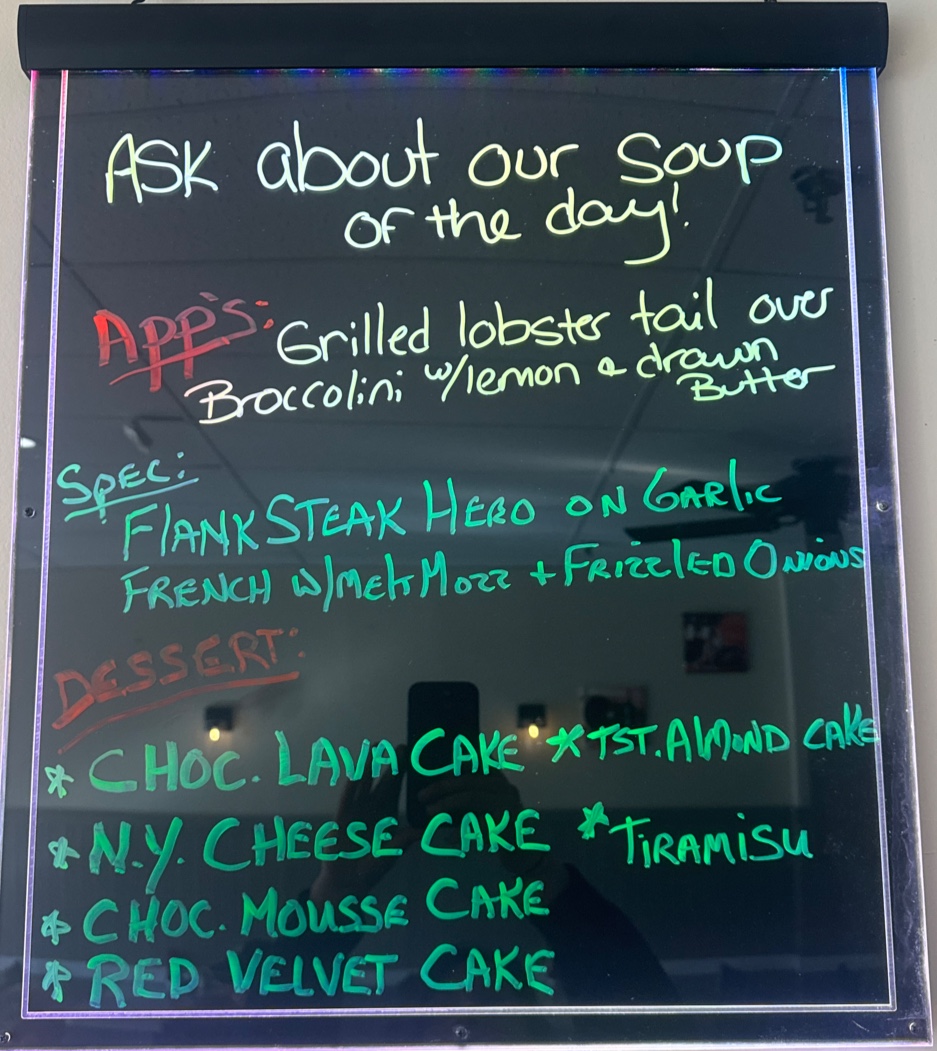 ASK about our Soup
of the day!
App's: Grilled lobster tail over
Broccolini w/lemon & drawn
Butter
Spec:
FlANK STEAK HERO ON GARlic
FRENCH w/Melt Mozz + FRizzlED ONiONS
DESSERT:
* CHOC. LAVA CAKE * TST. AlMOND CAKE
* N.Y. CHEESE CAKE * TiRAMiSU
* CHOC. MOUSSE CAKE
* RED VELVET CAKE